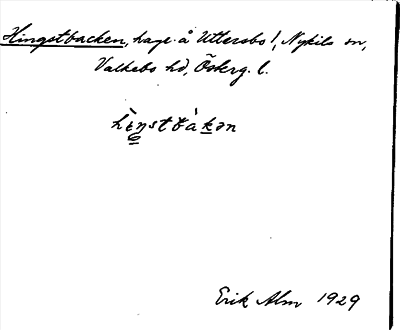 Hingstbacken, hage å Uttersbo 1, Nykils sn,
Valkebo hd, Öskrg. l.
hìŋstbàkən
Erik Alm 1929